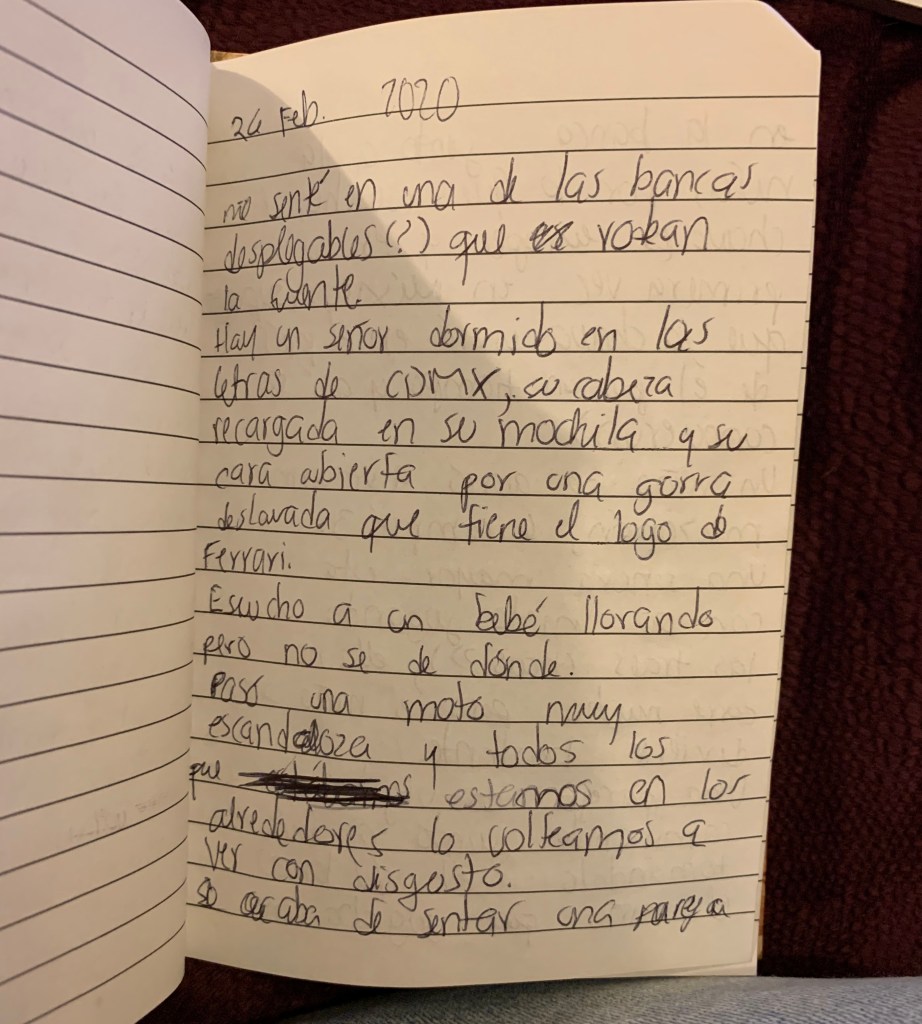 26 Feb. 2020
me senté en una de las bancas
desplegables(?) que rodean
la fuente.
Hay un señor dormido en las
letras de CDMX, su cabeza
recargada en su mochila y su
cara abierta por una gorra
deslavada que tiene el logo de
Ferrari.
Escucho a un bebé llorando
pero no se de dónde.
Paso una moto muy
escandaloza y todos los
que estamos en los
alrededores lo volteamos a
ver con disgusto.
se acaba de sentar una pareja